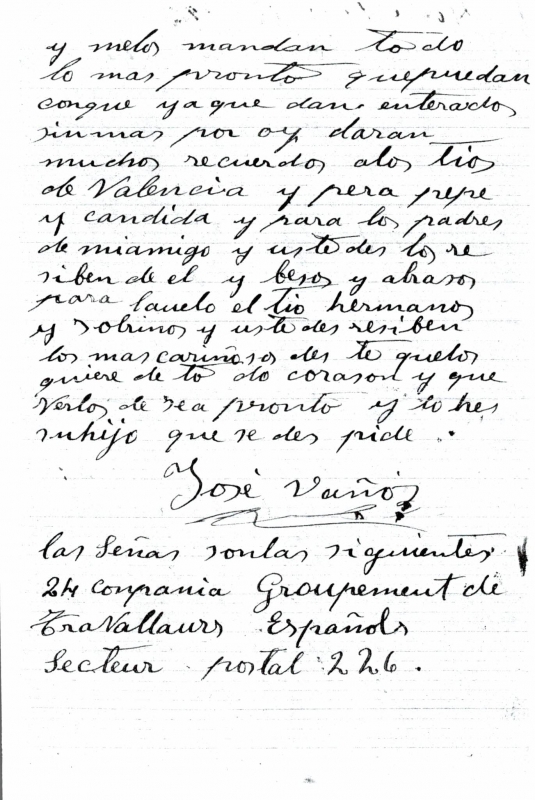 y melos mandan todo
lo mas pronto quepuedan
conque yaque dan enterados
sinmas por oy daran
muchos recuerdos alos tios
de Valencia y pera pepe
y candida y para los padres
de miamigo y ustedes los re
siben de el y besos y abrasos
para lauelo el tio hermanos
y sobrinos y ustedes resiben
los mas cariñosos des te quelos
quiere de to do corason y que
verlos de sea pronto y lo hes
suhijo que se des pide.
José Vañó
las Señas sonlas siguientes
24 conpania Groupement de
TraVallaurs Español
Secteur postal 226.